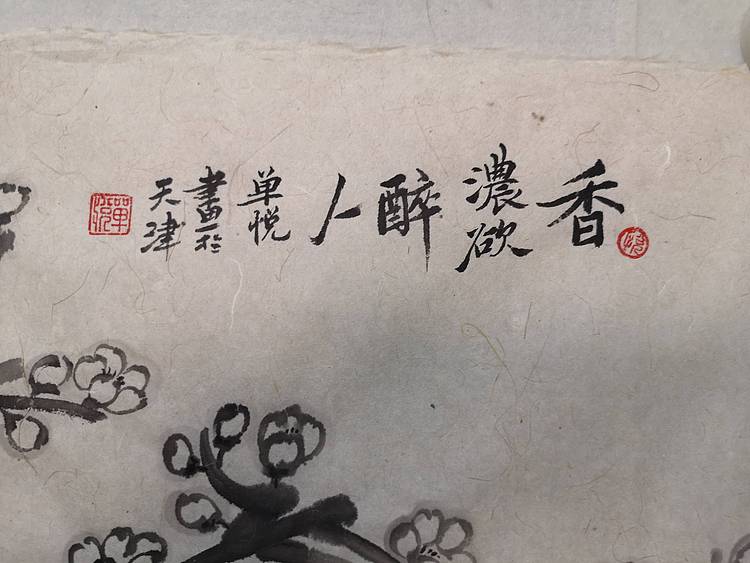 香
濃欲
醉
人
单悦
畫於
天津